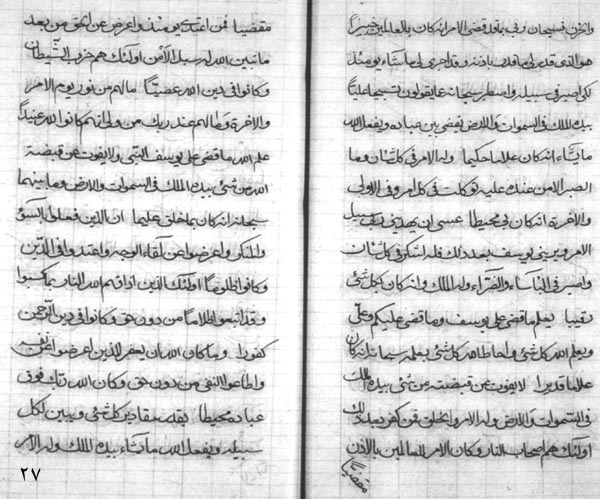 واحزن فسبحان وفي بما قد قضى الامر انه كان بالعالمين خبيرا
هو الذي قدر لي ما قدر باذنه وقد اجرى لي ما يشاء يومئذ
لكي اصبر في سبيله واصطبر سبحانه عما يقولون تسبيحا عليا
بيده الملك في السموات والارض يقضي بين عباده ويفعل الله
ما يشاء انه كان علاما حكيما وله الامر في كل شان وما
الصبر الا من عنده عليه توكلت في كل امر وفي الاولى
والاخرة انه كان بي محيطا عسى ان يهديني ربي سبيل
الامر ويريني يوسف بعد ذلك فله اشكر في كل شان
واصبر في الباساء والضراء وله الملك وانه كان بكل شئ
رقيبا يعلم ما قضى على يوسف وما قضى عليكم وعلي
ويعلم الله كل شئ واحاط الله كل شئ بعلمه سبحانه انه كان
علاما قديرا لا يفوت عن قبضته من شئ بيده الملك
في السموات والارض وله الامر والخلق فمن كفر بعد ذلك
اولئك هم اصحاب النار وكان الامر للعالمين بالاذن
مقضيا
مقضيا فمن اعتدى يومئذ واعرض عن الحق من بعد
ما تبين الله له سبل الامن اولئك هم حزب الشيطان
وكانوا في دين الله عصيا ما لهم من نور يوم الامر
والاخرة وما لهم عند ربك من ولي انهم كانوا الله عنيدا
علم الله ما قضى على يوسف النبي ولا يفوت عن قبضة
الله من شئ بيده الملك في السموات والارض وما بينهما
سبحانه انه كان بما خلق عليما ان الذين فعلوا بالسوء
والمنكر واعرضوا عن لقاء الوجه واعتدوا في الدين
وكانوا ظلوما اولئك الذين اذاقهم الله النار بما كسبوا
وقد اتبعوا ظلاما من دون حق وكانوا في دين الرحمن
كفورا وما كان الله ان يغفر الذين اعرضوا
واطاعوا النفس من دون حق وكان الله ربك فوق
عباده محيطا يقدر مقادير كل شئ ويبين لكل
سبيله ويفعل الله ما يشاء بيده الملك وله الامر
٢٧